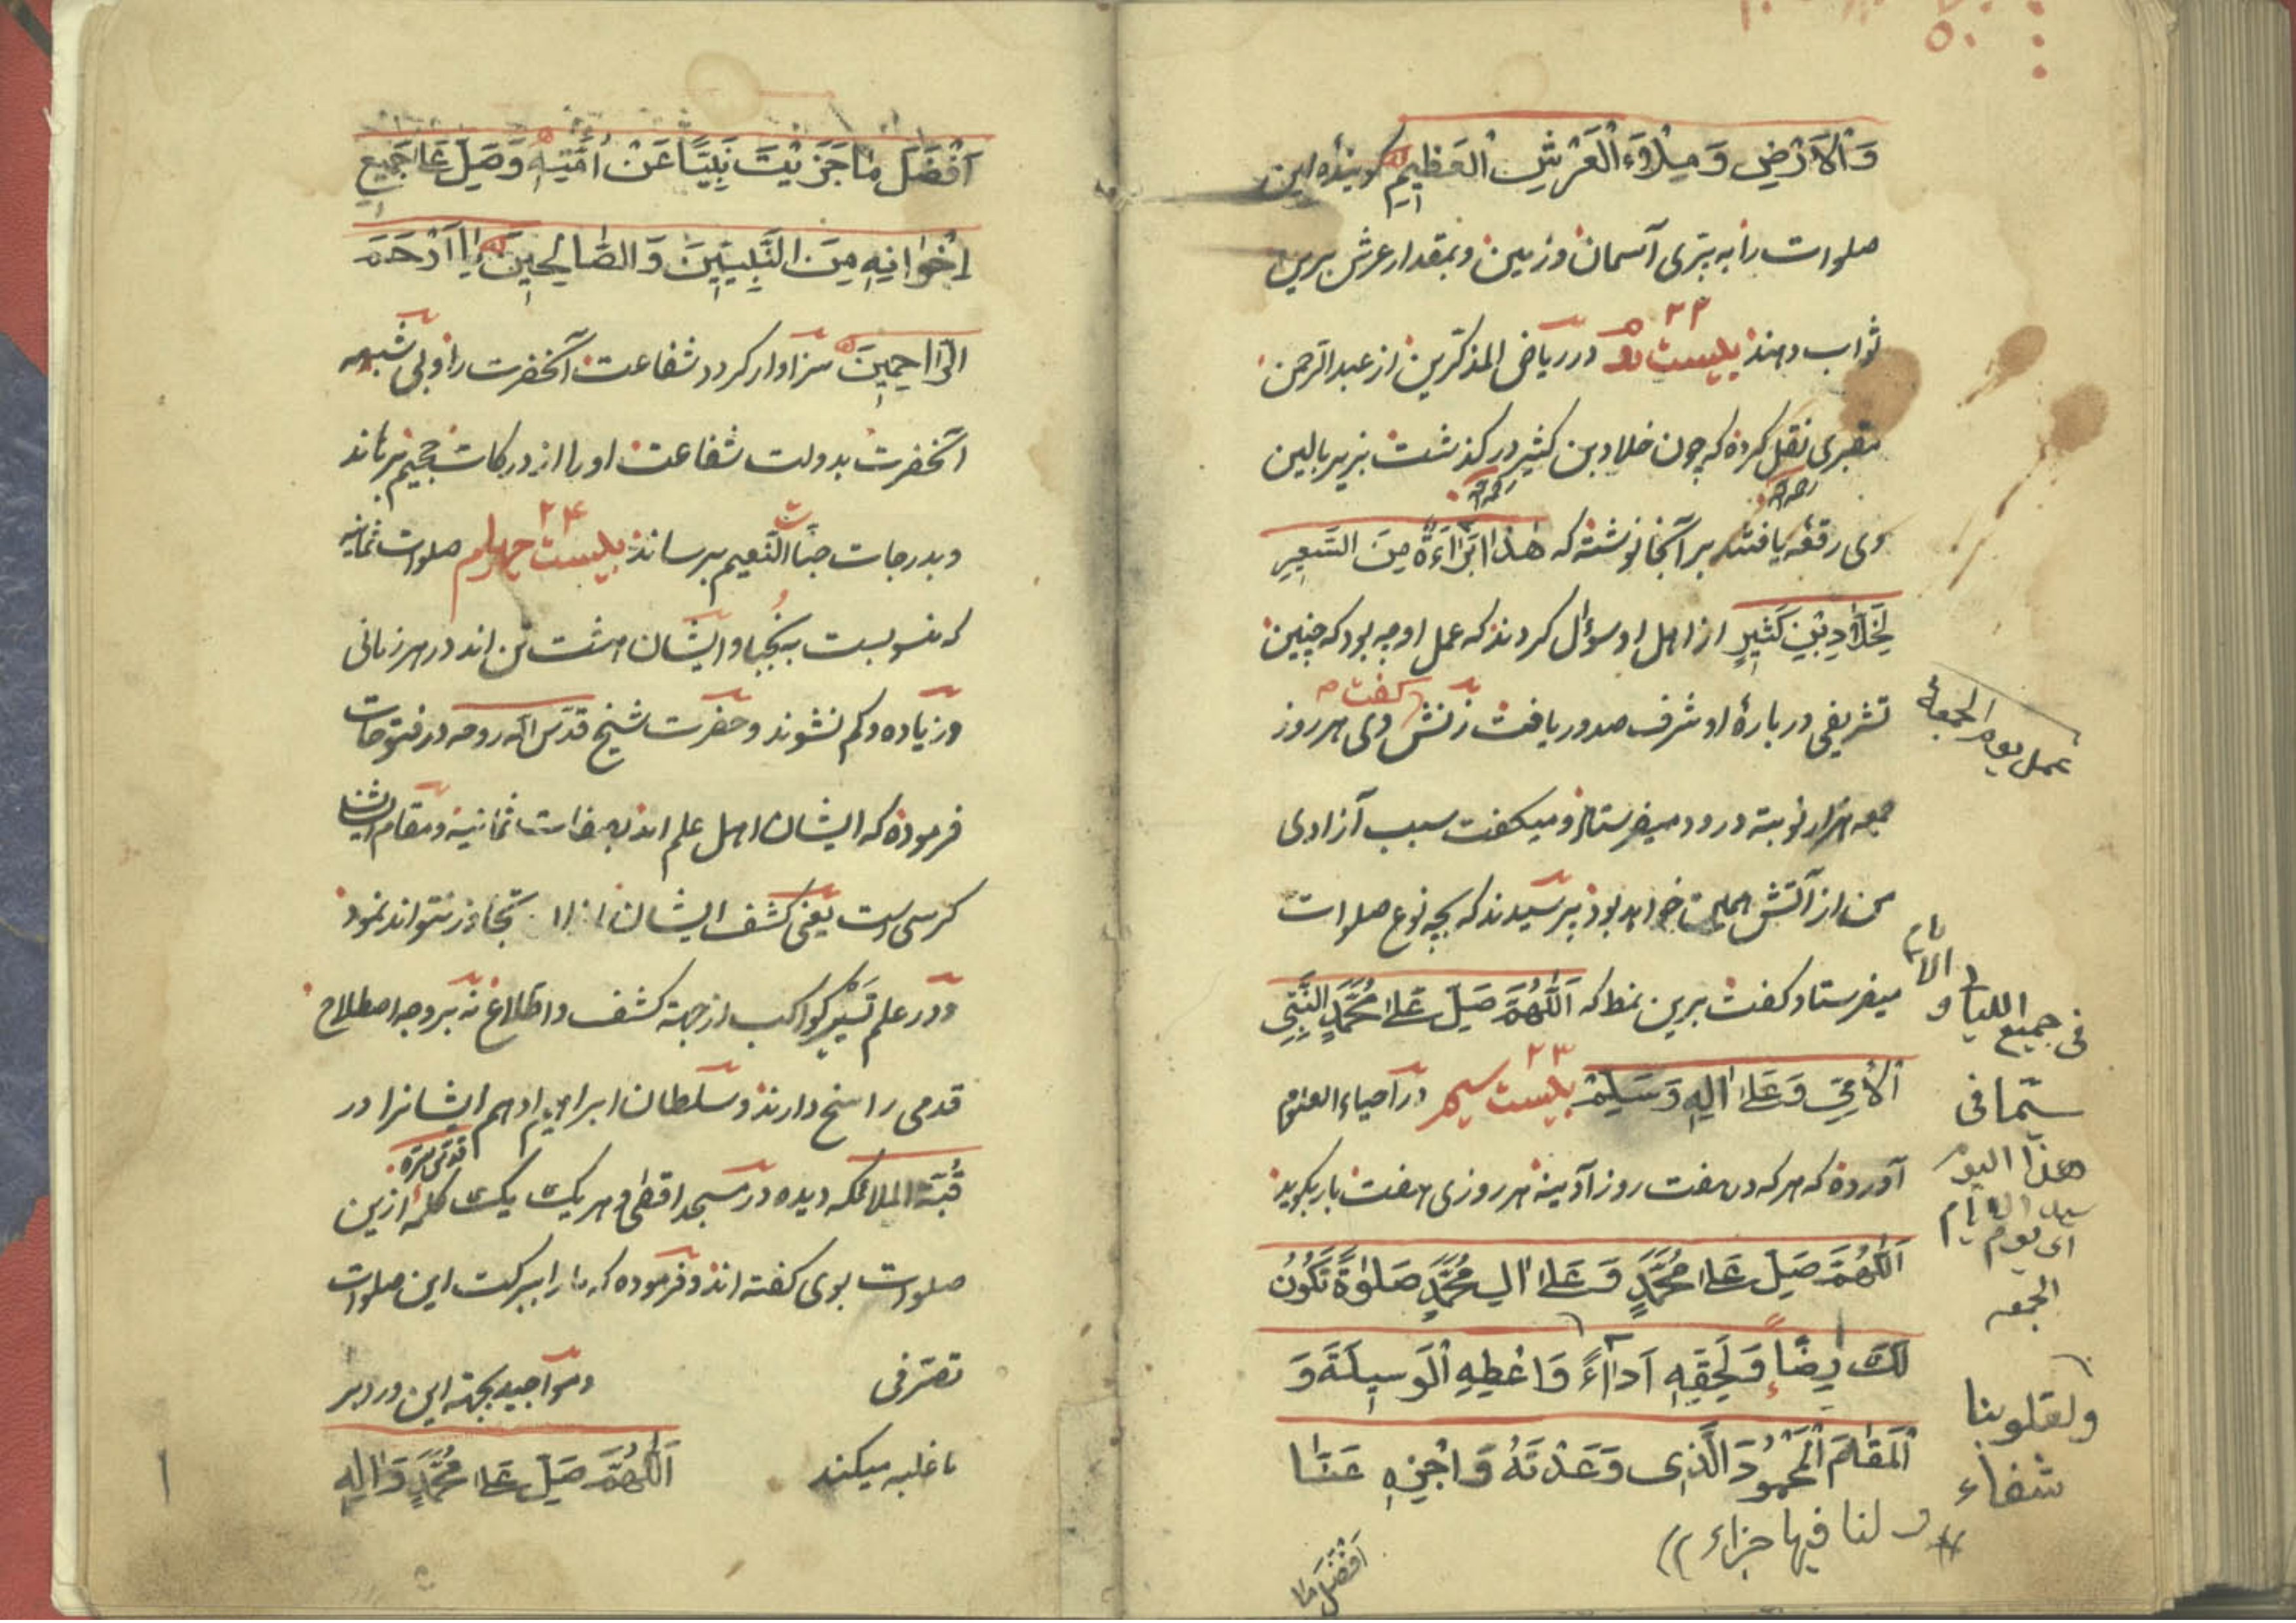 وَالْاَرْضِ وَمِلْاءَ الْعَرْشِ الْعَظِيمِ كوينده اين
صلوات را به پرى آسمان و زمين و بمقدار عرش برين
ثواب دهند بيست ۲۲ در رياض المذكرين از عبد الرحمن
مقبرى نقل كرده كه چون خلاد بن كثير در كذشت بزير بالين
وى رقعه يافتند بر آنجا نوشته كه هٰذا بَرٰاءَةٌ مِنَ السَّعِيرِ
لِخَلَّادِ بْنِ كَثِيرٍ از اهل او سؤال كردند كه عمل او چه بود كه چنين
تشريفى در بارۀ او شرف صدور يافت زنش كفت وى هر روز
جمعه هزار نوبته درود ميفرستاد و ميكفت سبب آزادى
من از آتش همين خواهد بود پرسيدند كه بچه نوع صلوات
ميفرستاد كفت برين نمط كه اَللّٰهُمَّ صَلِّ عَلىٰ مُحَمَّدٍ النَّبِىِّ
الْاُمِّىِّ وَعَلىٰ اٰلِهِ وَسَلِّمْ بيست سيم ۲۳ در احياء العلوم
آورده كه هر كه در هفت روز آدينه هر روزى هفت بار بكويد
اَللّٰهُمَّ صَلِّ عَلىٰ مُحَمَّدٍ وَعَلىٰ اٰلِ مُحَمَّدٍ صَلوٰةً تَكُونُ
لَكَ رِضًاءً وَلِحَقِّهِ اَدٰاءً وَاعْطِهِ الْوَسِيلَةَ وَ
الْمَقٰامَ الْمَحْمُودَ الَّذِى وَعَدْتَهُ وَاجْزِهِ عَنّٰا
اَفْضَلَ مٰا
عمل يوم الجمعة
فى جميع الليالى و
الايام
سيّما فى
هذا اليوم
سيد الايام
اى يوم
الجمعه
ولقلوبنا
شفاء
ولنا فيها جزاء
اَفْضَلَ مٰا جَزَيْتَ نَبِيًّا عَنْ اُمَّتِهِ وَصَلِّ عَلىٰ جَمِيعِ
اِخْوٰانِهِ مِنَ النَّبِيّينَ وَالصّٰالِحِينَ يٰا اَرْحَمَ
الرّٰاحِمِينَ سزاوار كردد شفاعت آنحضرت را ولى شبهه
آنحضرت بدولت شفاعت او را از دركات جحيم برهاند
و بدرجات جنّات النّعيم برساند بيست چهارم ۲۴ صلوات ثمانيه
كه منسوبست به نجبا و ايشان هشت تن اند در هر زمانى
و زياده و كم نشوند و حضرت شيخ قدّس الله روحه در فتوحات
فرموده كه ايشان اهل علم اند بصفات ثمانيه و مقام ايشان
كرسى است يعنى كشف ايشان از تجاوز نتواند نمود
و در علم تَسْيِير كواكب از جهة كشف و اطّلاع نه بر وجه اصطلاح
قدمى راسخ دارند و سلطان ابراهيم ادهم ايشانرا در
قدّس سرّه
قُبّة الملائكه ديده در مسجد اقصٰى و هر يك يك كلمه ازين
صلوات بوى كفته اند و فرموده كه ما را ببركت اين صلوات
تصرّفى و مواجيد بجهة اين ورد بر
ما غلبه ميكند اَللّٰهُمَّ صَلِّ عَلىٰ مُحَمَّدٍ وَاٰلِهِ